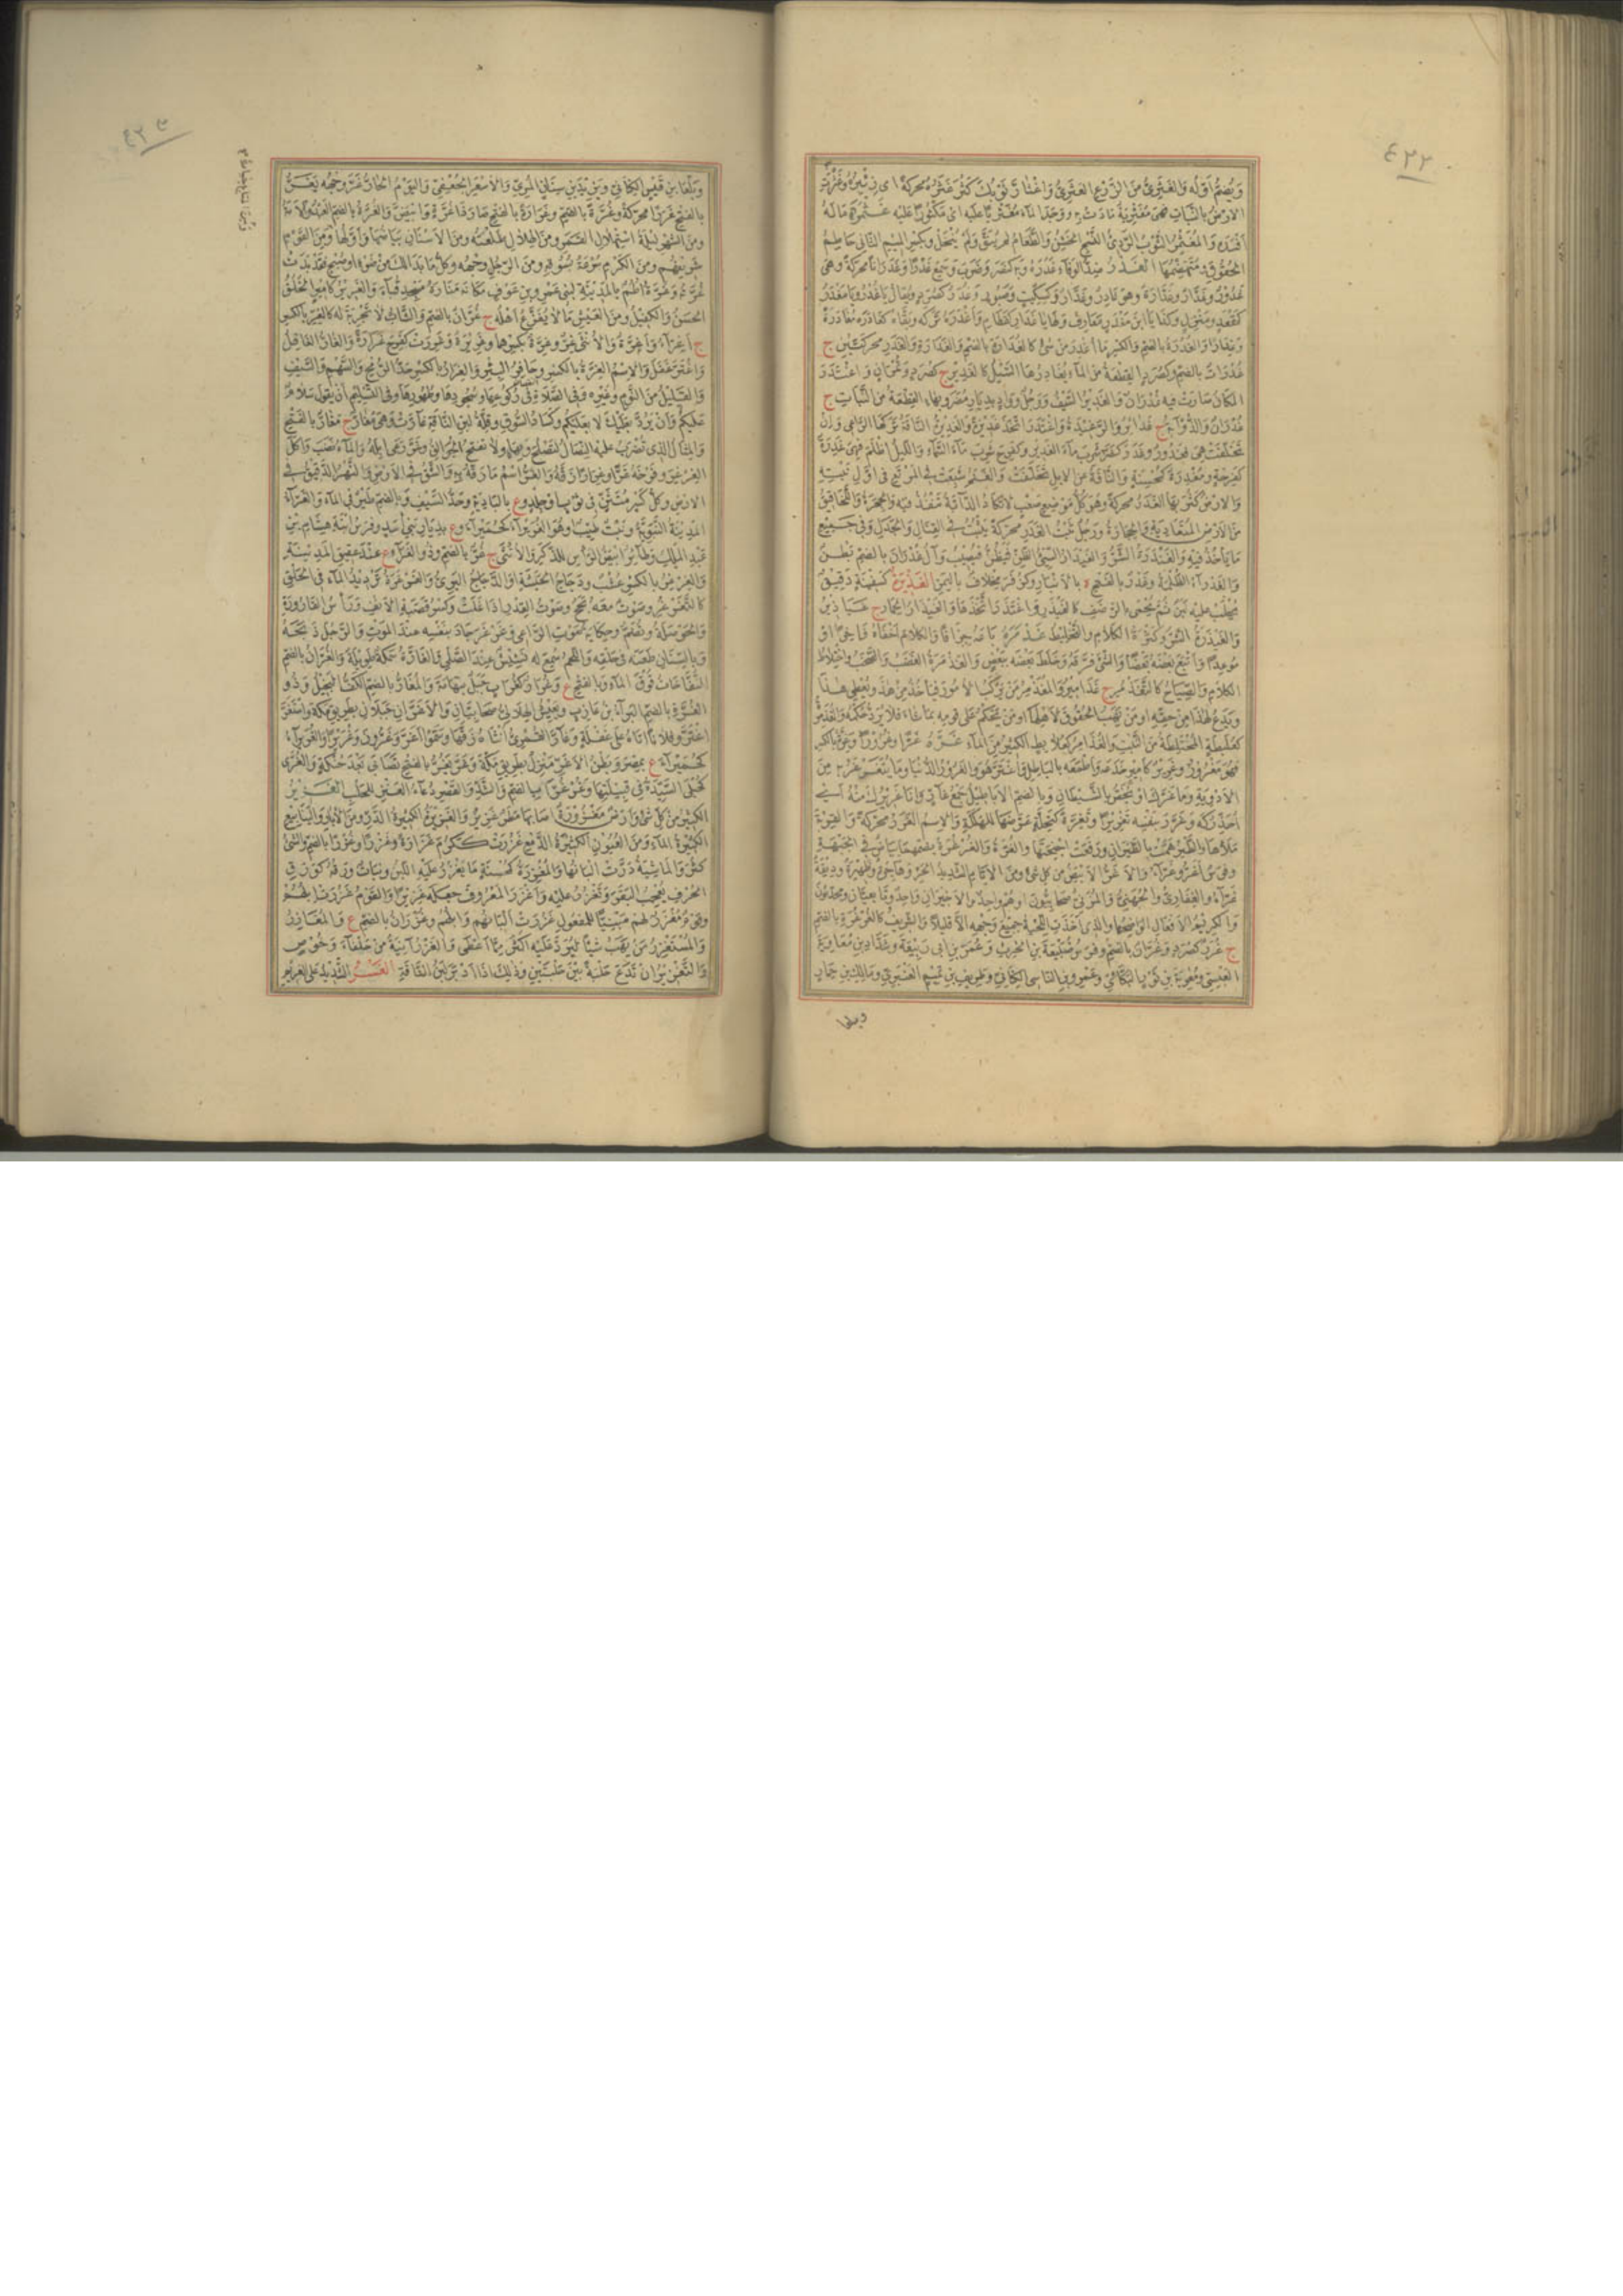 ٤٣٢
ويضم اوله والغثرى من الزرع العثرى واغثار ثوبك كثر غثره محركة اى زئبره وغثرت
الارض بالنبات فهى مغثرية مادت به ووجد الماء مغثريا عليه اى مكثورا عليه غثمر ماله
افسده والمغثمر الثوب الردىء النسج الخشن والطعام لم ينق ولم ينخل وبكسر الميم الثانى حاطم
الحقوق ومتهضمها الغدر ضد الوفاء غدره وبه كنصر وضرب وسمع غدرا وغدرانا محركة وهى
غدور وغدار وغدارة وهو غادر وغدار وكسكيت وصبور وغدر كصرد ويقال يا غدر ويا مغدر
كمقعد ومنزل وكذا يا ابن مغدر معارف ولها يا غدار كقطام واغدره تركه وبقاه كغادره مغادرة
وغدارا والغدرة بالضم والكسر ما اغدر من شىء كالغدارة بالضم والغدرة والغدر محركتين ج
غدرات بالضم وكصرد القطعة من الماء يغادرها السيل كالغدير ج كصرد وتمران واغتدر
المكان صارت فيه غدران والغدير السيف ورجل وواد بديار مضر وبهاء القطعة من النبات ج
غدران والذؤابة ج غدائر والرغيدة واغتدر اتخذ غديرة والغديرة الناقة تركها الراعى وان
تخلفت هى فغدور وغدر كضرب شرب ماء الغدير وكفرح شرب ماء السماء والليل اظلم فهى غدرة
كفرحة ومغدرة كمحسنة والناقة عن الابل تخلفت والغنم شبعت فى المرتع فى اول نبته
والارض كثر بها الغدر محركة وهو كل موضع صعب لا تكاد الدابة تنفذ فيه والجحرة واللخاقيق
من الارض المتعادية والحجارة ورجل ثبت الغدر محركة يثبت فى القتال والجدل وفى جميع
ما ياخذ فيه والغيدرة الشر والغيدار السيئ الظن يظن فيصيب وآل غدران بالضم بطن
والغدراء الظلمة وغدر بالفتح ة بالانبار وكزفر مخلاف باليمن الغذيرة كسفينة دقيق
يحلب عليه لبن ثم يحمى بالرضف كالغيذر واغتذر اتخذها والغيذار الحمار ج غياذير
والغيذرة الشر وكثرة الكلام والتخليط غذمره باعه جزافا والكلام اخفاه فاخرا او
موعدا واتبع بعضه بعضا والشىء فرقه وخلط بعضه ببعض والغذمرة الغضب والصخب واختلاط
الكلام والصياح كالتغذمر ج غذامير والمغذمر من يركب الامور فياخذ من هذا ويعطى هذا
ويدع لهذا من حقه او من يهب الحقوق لاهلها او من يحكم على قومه بما شاء فلا يرد حكمه والغذمرة
كعلبطة المختلطة من النبت والغذامر كعلابط الكثير من الماء غره غرا وغرورا وغرة بالكسر
فهو مغرور وغرير كامير خدعه واطمعه بالباطل فاغتر هو والغرور الدنيا وما يتغرغر به من
الادوية وما غرك او يخص بالشيطان وبالضم الاباطيل جمع غار وانا غريرك منه اى
احذركه وغرر بنفسه تغريرا وتغرة كتحلة عرضها للهلكة والاسم الغرر محركة والقربة
ملاها والطير همت بالطيران ورفعت اجنحتها والغرة والغرغرة بضمهما بياض فى الجبهة
وفرس اغر وغراء والاغر الابيض من كل شىء ومن الايام الشديد الحر وهاجرة وظهيرة ووديقة
غراء والغفارى والجهنى والمزنى صحابيون او هم واحد والاخيران واحد وتابعيان ومحدثون
والكريم الافعال الواضحها والذى اخذت اللحية جميع وجهه الا قليلا والشريف كالغرغرة بالضم
ج غرر كصرد وغران بالضم وفرس ضبيعة بن الحرث وعمر بن ابى ربيعة وشداد بن معاوية
العبسى ومعوية بن ثور البكائى وعمرو بن الناسى الكنانى وطريف بن تميم العنبرى ومالك بن حماد
وبلعا
٤٣٣
وبلعا بن قيس الكنانى ويزيد بن سنان المرى والاسعر الجعفى واليوم الحار غر وجهه يغر
بالفتح غررا محركة وغرة بالضم وغرارة بالفتح صار ذا غرة وابيض والغرة بالضم العبد والامة
ومن الشهر ليلة استهلال القمر ومن الهلال طلعته ومن الاسنان بياضها واولها ومن القوم
شريفهم ومن الكرم سرعة بسوقه ومن الرجل وجهه وكل ما بدا لك من ضوء او صبح فقد بدت
غرته وغرة اطم بالمدينة لبنى عمرو بن عوف مكانه منارة مسجد قباء والغرير كامير الخلق
الحسن والكفيل ومن العيش ما لا يفزع اهله ج غران بالضم والشاب لا تجربة له كالغر بالكسر
ج اغراء واغرة والانثى غر وغرة بكسرهما وغريرة وغررت كفرح غرارة والغار الغافل
واغتر غفل والاسم الغرة بالكسر وحافر البئر والغرار بالكسر حد الرمح والسهم والسيف
والقليل من النوم وغيره وفى الصلاة فى ركوعها وسجودها وطهورها وفى التسليم ان يقول سلام
عليكم وان يرد بعليك لا بعليكم وكساد السوق وقلة لبن الناقة غارت وهى مغار ج مغار بالفتح
والمثال الذى تضرب عليه النصال لتصلح وبهاء ولا تفتح الجوالق وغر رعى ابله والماء نضب واكل
الغرغر وفرخه غرا وغرارا زقه والغر اسم ما زقه به والشق فى الارض والنهر الدقيق فى
الارض وكل كسر متثن فى ثوب او جلد وع بالبادية وحد السيف وبالضم طير فى الماء والغراء
المدينة النبوية ونبت طيب او هو الغريراء كحميراء وع بديار بنى اسد وفرس ابنة هشام بن
عبد الملك وطائر ابيض الراس للذكر والانثى ج غر بالضم وذو الغراء ع عند عقيق المدينة
والغرغر بالكسر عشب ودجاج الحبشة او الدجاج البرى والغرغرة ترديد الماء فى الحلق
كالتغرغر وصوت معه بحح وصوت القدر اذا غلت وكسر قصبة الانف وراس القارورة
والحوصلة وتضم وحكاية صوت الراعى وغرغر جاد بنفسه عند الموت والرجل ذبحه
وبالسنان طعنه فى حلقه واللحم سمع له نشيش عند الصلى والغارة سمكة طويلة والغران بالضم
النفاخات فوق الماء وبالفتح ع وغرار كغراب جبل بتهامة والمغار بالضم الكف البخيل وذو
الغرة بالضم البراء بن عازب ويعيش الهلالى صحابيان والاغران جبلان بطريق مكة واستغر
اغتر وفلانا اتاه على غفلة وغار القمرى انثاه زقها وسموا اغر وغرون وغريرا والغريراء
كحميراء ع بمصر وبطن الاغر منزل بطريق مكة وغر يغر بالفتح تصابى بعد حنكة والغرى
كحبلى السيدة فى قبيلتها وغرغرى بالضم والشد والقصر دعاء العنز للحلب الغزير
الكثير من كل شىء وارض مغزورة اصابها مطر غزير والغزيرة الكثيرة الدر ومن الابار والينابيع
الكثيرة الماء ومن العيون الكثيرة الدمع غزرت ككرم غزارة وغزرا وغزرا بالضم والشىء
كثر والماشية درت البانها والمغزرة كمحسنة ما يغزر عليه اللبن ونبات ورقه كورق
الحرف يعجب البقر وتغزر عليه واغزر المعروف جعله غزيرا والقوم غزرت ابلهم
وقوم مغزر لهم مبنيا للمفعول غزرت البانهم وابلهم وغزران بالضم ع والمغازر
والمستغزر من يهب شيئا ليرد عليه اكثر مما اعطى والغزر آنية من حلفاء وخوص
والتغزير ان تدع حلبة بين حلبتين وذلك اذا ادبر لبن الناقة الغسر التشديد على الغريم